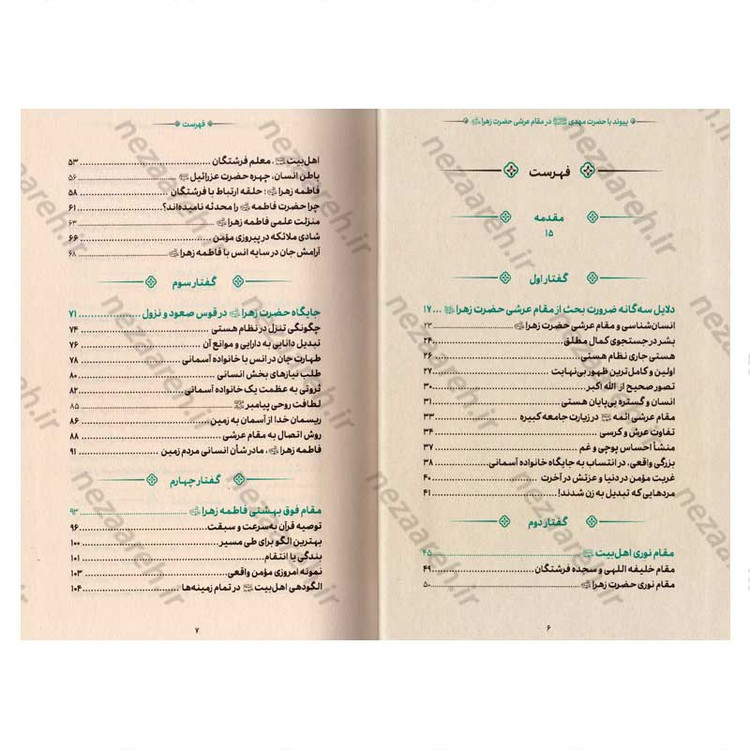 پیوند با حضرت مهدی در مقام عرشی حضرت زهرا
فهرست
مقدمه
۱۵
گفتار اول
دلایل سه‌گانه ضرورت بحث از مقام عرشی حضرت زهرا ... ۱۷
انسان‌شناسی و مقام عرشی حضرت زهرا ... ۲۳
بشر در جستجوی کمال مطلق ... ۲۴
هستی جاری نظام هستی ... ۲۶
اولین و کامل‌ترین ظهور بی‌نهایت ... ۲۷
تصور صحیح از الله اکبر ... ۳۰
انسان و گستره بی‌پایان هستی ... ۳۱
مقام عرشی ائمه در زیارت جامعه کبیره ... ۳۳
تفاوت عرش و کرسی ... ۳۴
منشأ احساس پوچی و غم ... ۳۷
بزرگی واقعی، در انتساب به جایگاه خانواده آسمانی ... ۳۸
غربت مؤمن در دنیا و عزتش در آخرت ... ۴۰
مردهایی که تبدیل به زن شدند! ... ۴۱
گفتار دوم
مقام نوری اهل‌بیت ... ۴۵
مقام خلیفه اللهی و سجده فرشتگان ... ۴۹
مقام نوری حضرت زهرا ... ۵۰
۶
فهرست
اهل‌بیت، معلم فرشتگان ... ۵۳
باطن انسان، چهره حضرت عزرائیل ... ۵۶
فاطمه زهرا؛ حلقه ارتباط با فرشتگان ... ۵۸
چرا حضرت فاطمه را محدثه نامیده‌اند؟ ... ۶۱
منزلت علمی فاطمه زهرا ... ۶۳
شادی ملائکه در پیروزی مؤمن ... ۶۶
آرامش جان در سایه انس با فاطمه زهرا ... ۶۸
گفتار سوم
جایگاه حضرت زهرا در قوس صعود و نزول ... ۷۱
چگونگی تنزل در نظام هستی ... ۷۴
تبدیل دانایی به دارایی و موانع آن ... ۷۶
طهارت جان در انس با خانواده آسمانی ... ۷۸
طلب نیازهای بخش انسانی ... ۸۰
ثروتی به عظمت یک خانواده آسمانی ... ۸۲
لطافت روحی پیامبر ... ۸۵
ریسمان خدا از آسمان به زمین ... ۸۶
روش اتصال به مقام عرشی ... ۸۸
فاطمه زهرا، مادر شأن انسانی مردم زمین ... ۹۱
گفتار چهارم
مقام فوق بهشتی فاطمه زهرا ... ۹۳
توصیه قرآن به‌سرعت و سبقت ... ۹۶
بهترین الگو برای طی مسیر ... ۱۰۰
بندگی یا انتقام ... ۱۰۱
نمونه امروزی مؤمن واقعی ... ۱۰۳
الگودهی اهل‌بیت در تمام زمینه‌ها ... ۱۰۴
۷
nezaareh.ir